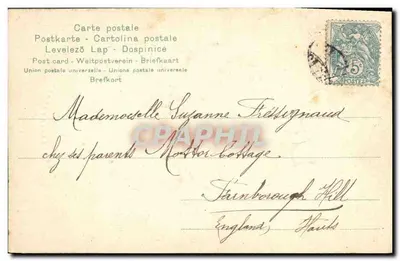 Carte postale
Postkarte - Cartolina postale
Levelező Lap - Dospinice
Post card - Weltpostverein - Briefkaart
Union postale universelle - Unione postale universale
Brefkort
Mademoiselle Suzanne
chez ses parents Cottage
Farnborough Hill
England, Hants